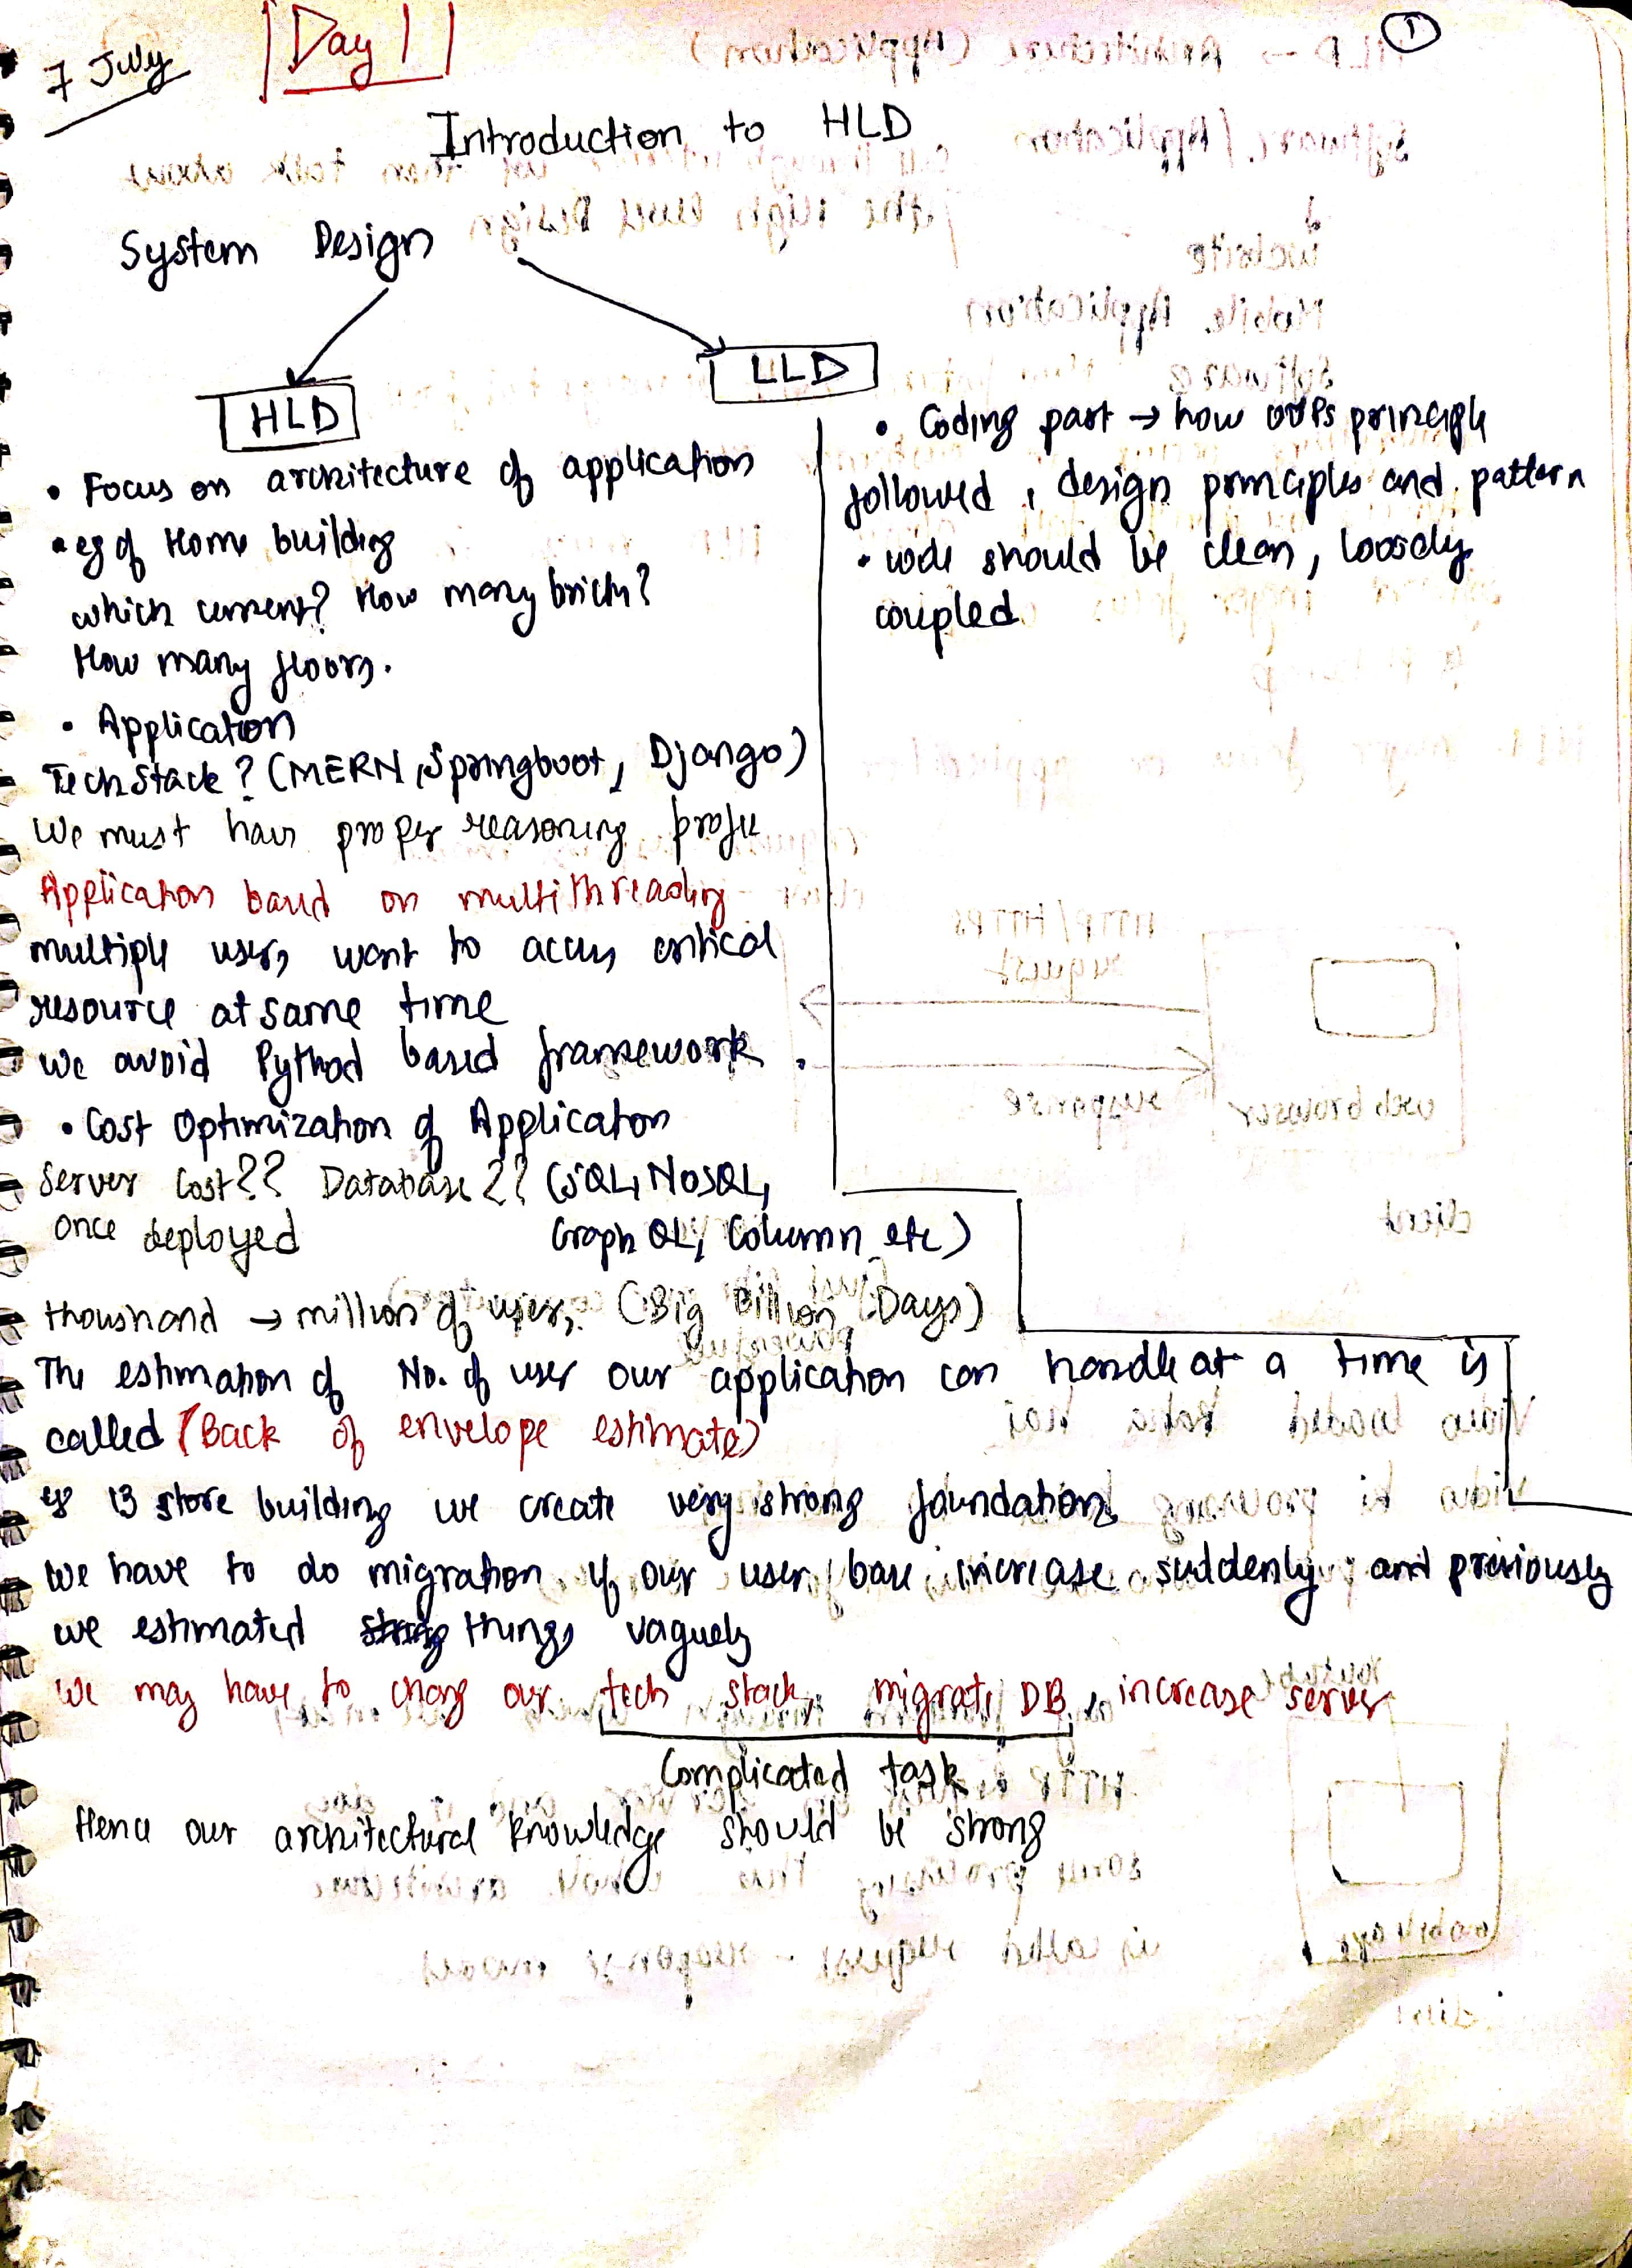 7 July
Day 1
1
Introduction to HLD
System Design
HLD
LLD
• Focus on architecture of application
• eg of Home building
which cement? How many bricks?
How many floors.
• Application
Tech Stack? (MERN, Springboot, Django)
We must have proper reasoning
Application based on multithreading
multiple users want to access critical
resource at same time
we avoid Python based framework.
• Cost Optimization of Application
Server Cost?? Database?? (SQL, NoSQL,
once deployed Graph QL, Column etc)
• Coding part → how OOPs principle
followed, design principles and pattern
• code should be clean, loosely
coupled
thoushand → million of users, (Big Billion Days)
The estimation of No. of user our application can handle at a time is
called (Back of envelope estimate)
eg 13 store building we create very strong foundation
We have to do migration if our user base increase suddenly and previously
we estimated things vaguely
We may have to chang our tech stack, migrate DB, increase server
Complicated task
Hence our architectural knowledge should be strong